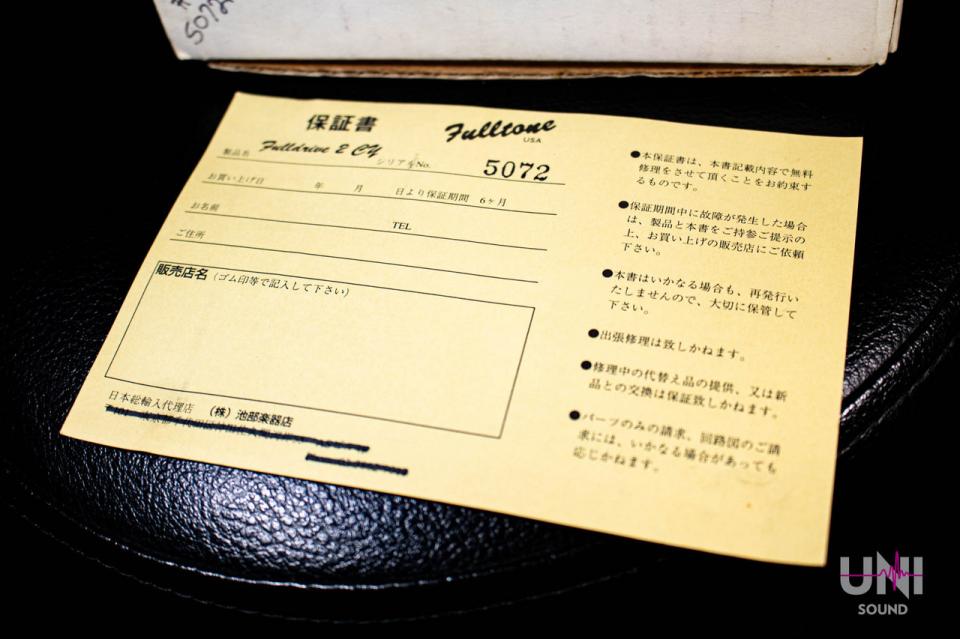 5072
保証書
Fulltone
USA
製品名 Fulldrive 2 CY シリアルNo. 5072
お買い上げ日 年 月 日より保証期間 6ヶ月
お名前 TEL
ご住所
販売店名(ゴム印等で記入して下さい)
日本総輸入代理店 (株)池部楽器店
●本保証書は、本書記載内容で無料
修理をさせて頂くことをお約束す
るものです。
●保証期間中に故障が発生した場合
は、製品と本書をご持参ご提示の
上、お買い上げの販売店にご依頼
下さい。
●本書はいかなる場合も、再発行い
たしませんので、大切に保管して
下さい。
●出張修理は致しかねます。
●修理中の代替え品の提供、又は新
品との交換は保証致しかねます。
●パーツのみの請求、回路図のご請
求には、いかなる場合があっても
応じかねます。
UNI
SOUND